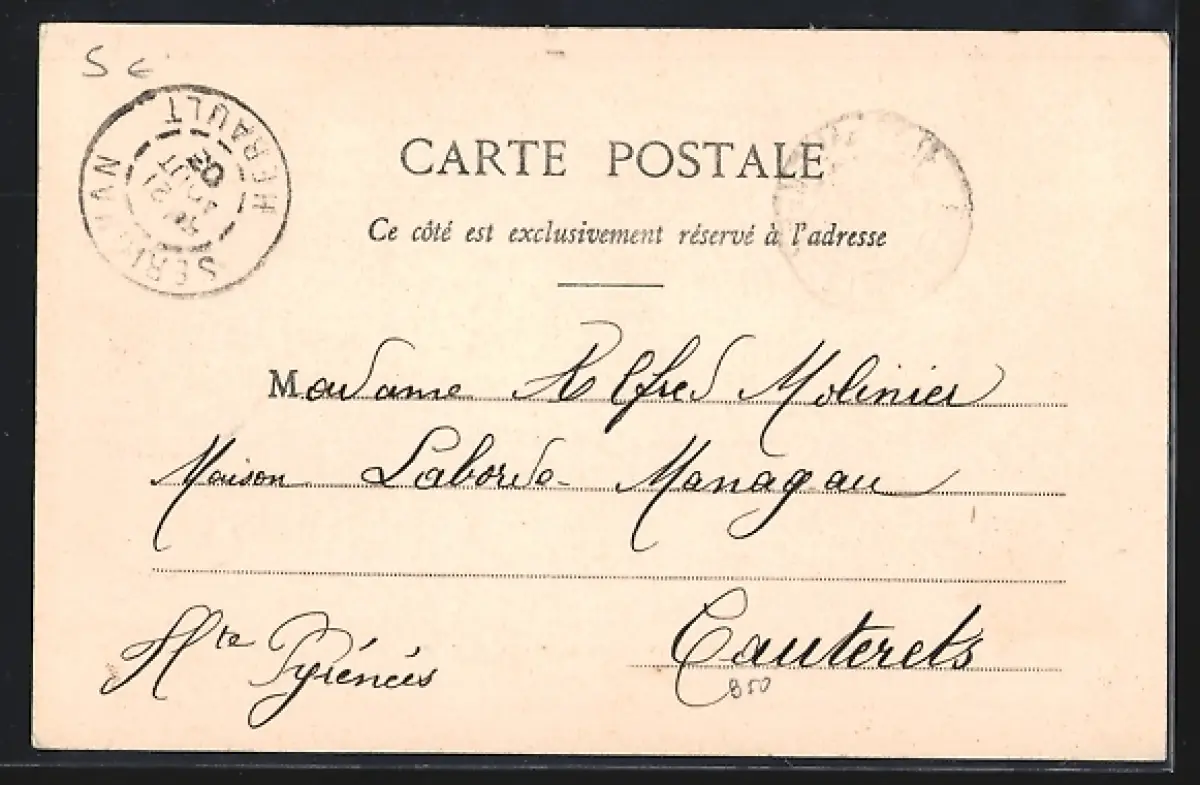 5 €
HÉRAULT
AOUT
02
CARTE POSTALE
Ce côté est exclusivement réservé à l'adresse
Madame Alfred Molinier
Maison Laborde-Managau
Hte Pyrénées
Cauterets
850